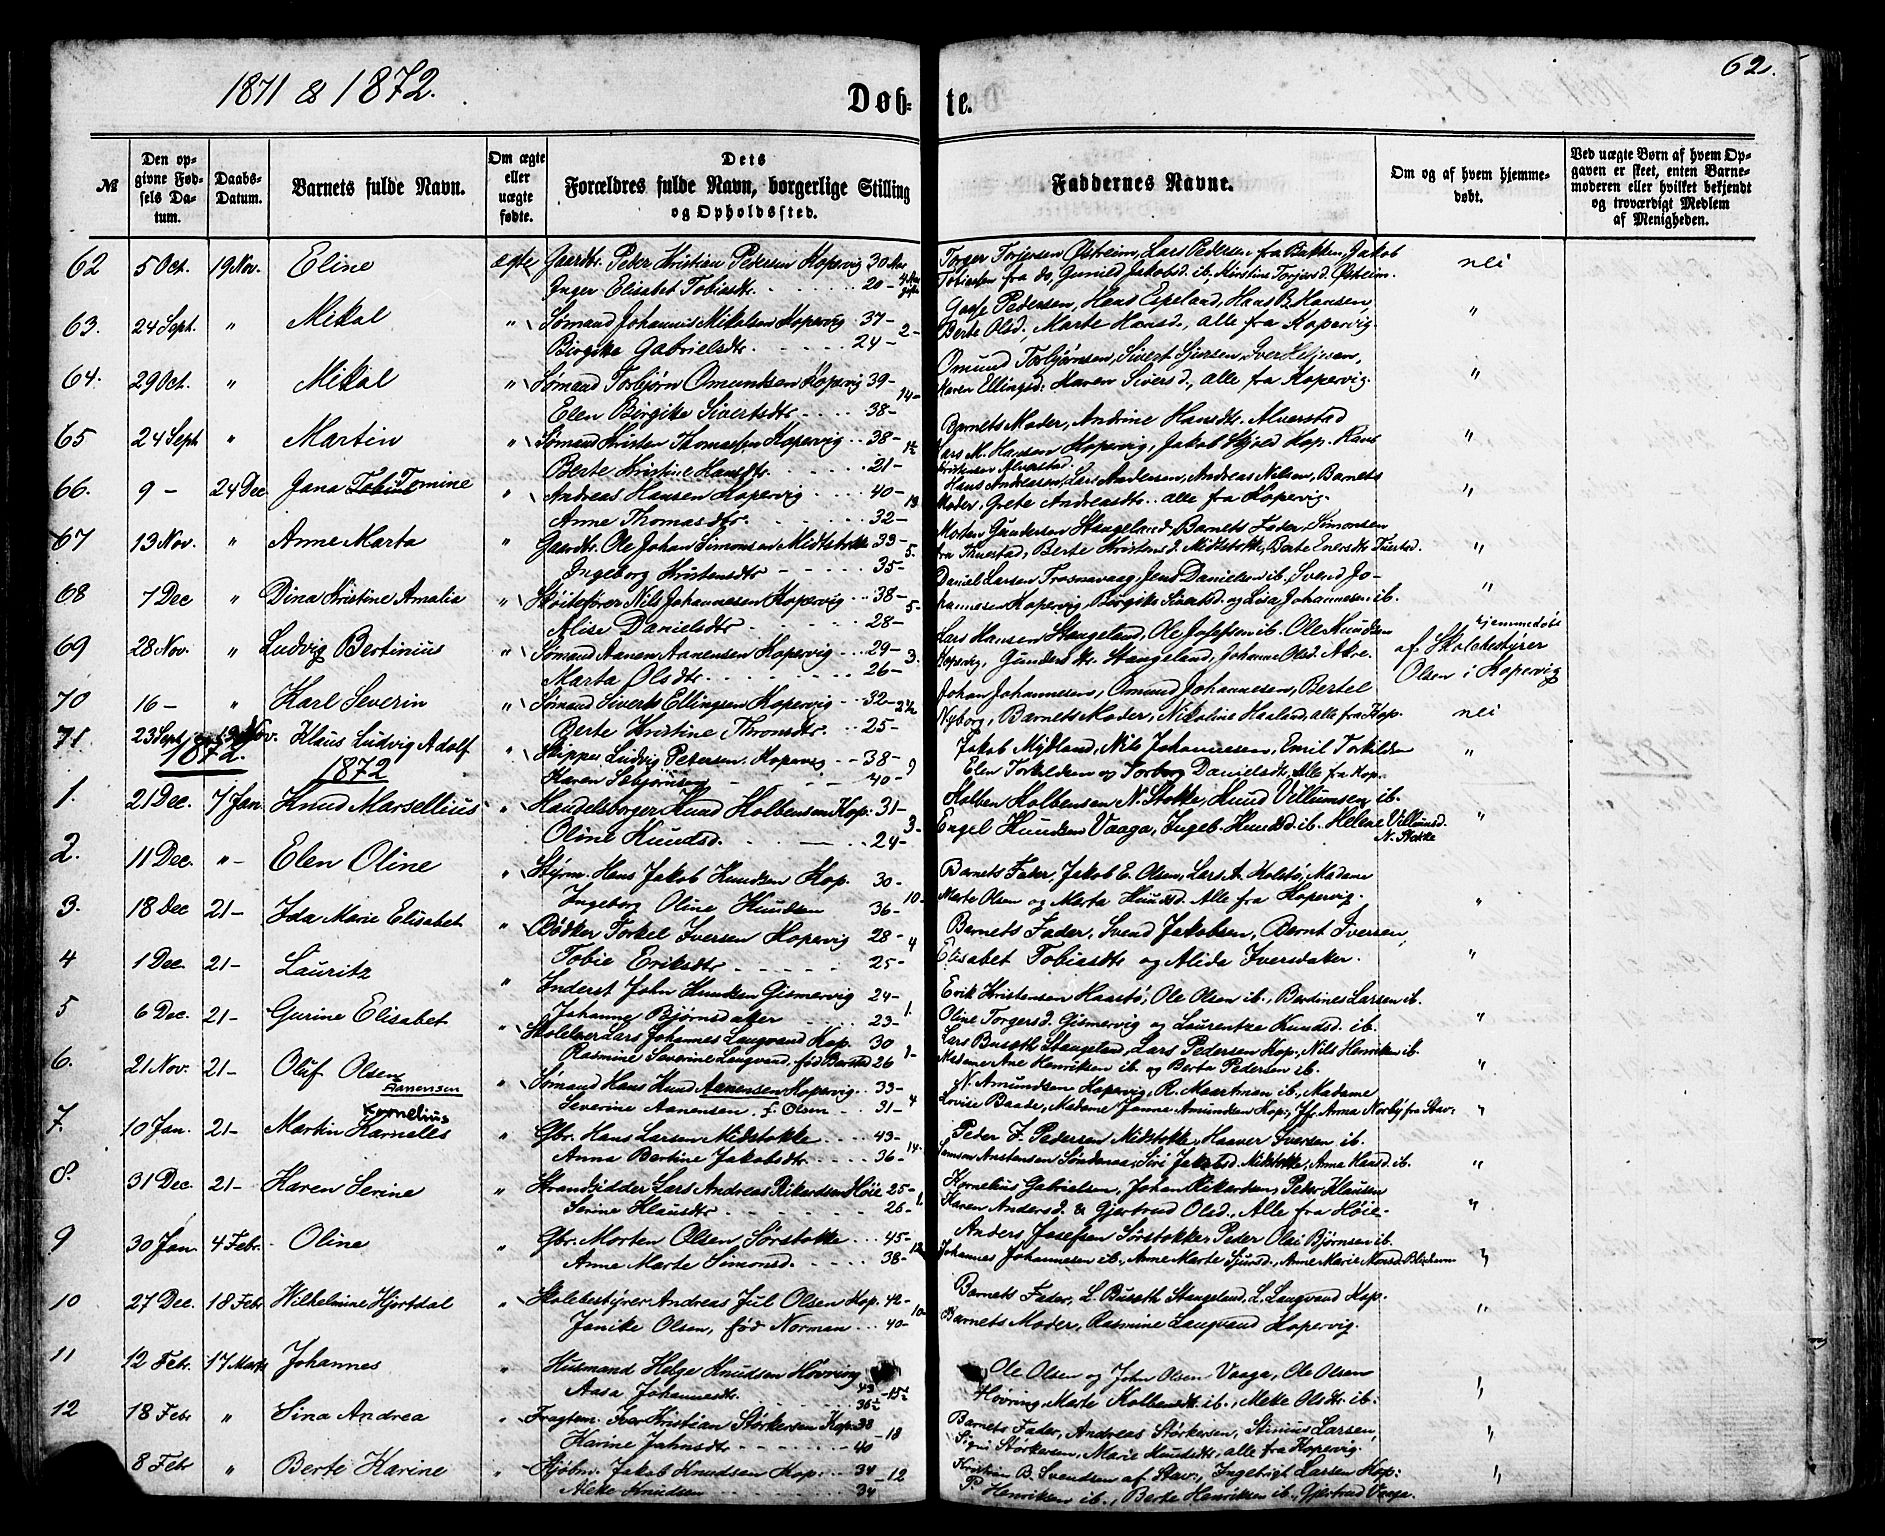 1871 & 1872.
62.
Døb-te.
№
Den opgivne Fødsels Datum.
Daabs-Datum.
Barnets fulde Navn.
Om ægte eller uægte fødte.
Dets Forældres fulde Navn, borgerlige Stilling og Opholdssted.
Faddernes Navne.
Om og af hvem hjemmedøbt.
Ved uægte Børn af hvem Opgaven er skeet, enten Barnemoderen eller hvilket bekjendt og troværdigt Medlem af Menigheden.
62 5 Oct. 19 Nov. Eline ægte Gaardtr. Peder Kristian Pedersen Kopervig 30 Aar
Inger Elisabet Tobiasdtr. 20 -
Torger Torjersen Østreim, Lars Pedersen fra Bakken, Jakob
Tobiassen fra do, Gunild Jakobsd. ib, Kirstine Torjersd. Østreim. nei
63. 24 Sept. " Mikal " Sømand Johannes Mikalsen Kopervig 37 - 2 -
Birgithe Gabrielsdtr. 24 -
Pedersen, Hans Espeland, Hans B. Hansen,
Berte Olsd., Marte Hansd., alle fra Kopervig. "
64. 29 Oct. " Mikal " Sømand Torbjørn Omundsen Kopervig 39 - 14 -
Elen Birgike Sivertsdtr. 38 -
Omund Torbjørnsen, Sivert Sjursen, Iver
Karen Ellingsd: Karen Siversd., alle fra Kopervig. "
65 24 Sept " Martin " Sømand Kristen Thomassen Kopervig 38 -
Berte Kristine Hansdtr. 21 -
Barnets Moder, Andrine Hansdtr. Alverstad
Lars M. Hansen Kopervig, Jakob Kop. Hans
Kristensen Alverstad. "
66. 9 - 24 Dec Jana Tomine " Andreas Hansen Kopervig 40 - 13
Anne Thomasdtr. 32 -
Hans Andreassen, Lars Andersen, Andreas Nilsen, Barnets
Moder, Grete Andreasdtr. alle fra Kopervig. "
67 13 Nov. " Anne Marta " Gaardtr. Ole Johan Simonsen Midtstokke 33 - 5.
Ingeborg Kristensdtr 35 -
Morten Gundersen Stangeland, Barnets Fader, Simonsen
fra Thuestad, Berte Kristensd. Midstokke, Berte Enersdtr Tuestad. "
68 7 Dec " Dina Kristine Amalia " Skøitefører Nils Johannesen Kopervig 38 - 5 -
Alise Danielsdtr 28 -
Daniel Larsen Trosnavaag, Jens Danielsen ib. Svend Jo-
hannesen Kopervig, Birgithe Siversd. og Lisa Johannesen ib. "
69 28 Nov. " Ludvig Bertinius " Sømand Aanen Aanensen Kopervig 29 - 3.
Marta Olsdtr. 26 -
Lars Hansen Stangeland, Ole Josefsen ib. Ole Knudsen
Kopervig, Gunders dtr. Stangeland, Johanne Olsd. Akre.
hjemmedøbt
af Skolebestyrer
Olsen i Kopervig
70 16 - " Karl Severin " Sømand Siverts Ellingsen Kopervig 32 - 2½
Berte Kristine Thronsdtr 25 -
Johan Johannesen, Omund Johannesen, Bertel
Nyborg, Barnets Moder, Nikoline Haaland, alle fra Kop. nei
71 23 Sept 19 Nov. Klaus Ludvig Adolf " Skipper Ludvig Petersen Kopervig 38 - 9
Karen 40 -
Jakob Mydland, Nils Johannesen, Emil Torkildsen
Elen Torkildsen og Torborg Danielsdtr. Alle fra Kop. "
1872. 1872
1. 21 Dec. 7 Jan Knud Marsellius " Handelsborger Knud Kolbensen Kop. 31 - 3 -
Oline Knudsd. 24 -
Kolben Kolbensen N. Stokke, Knud Villumsen ib.
Engel Knudsen Vaaga, Ingeb. Knudsd. ib. Helene Villumsd. N. Stokke "
2. 11 Dec. " - Elen Oline " Styrm. Hans Jakob Knudsen Kop. 30 - 10 -
Ingeborg Oline Knudsen 36 -
Barnets Fader, Jakob E. Olsen, Lars A. Kolstø, Madame
Marte Olsen og Marta Knudsd. Alle fra Kopervig. "
3. 18 Dec 21 - Ida Marie Elisabet " Bødker Torkel Iversen Kopervig 28 - 4
Tobie Eriksdtr 25 -
Barnets Fader, Svend Jakobsen, Bernt Iversen,
Elisabet Tobiasdtr og Alida Iversdaker. "
4 1 Dec. 21 - Lauritz " Inderst John Knudsen Gismervig 24 - 1.
Johanne Bjørnsdaker 23 -
Erik Kristensen Haastø, Ole Olsen ib., Berdines Larsen ib.
Oline Torgersd. Gismervig og Laurentze Knudsd. ib. "
5 6 Dec. 21 - Gurine Elisabet " Skolelærer Lars Johannes Langvand Kop. 30 1 -
Rasmine Severine Langvand, fød Barstad 26
Lars Busøth Stangeland, Lars Pedersen Kop., Nils Henriksen ib.
Madame Ane Henriksen ib. og Berta Pedersen ib. "
6. 21 Nov. 21 - Oluf Olsen Aanensen " Sømand Hans Knud Aanensen Kopervig 33 - 4
Severine Aanensen f. Olsen 31 -
N. Amundsen Kopervig, R. Maartman ib., Madame
Lovise Baade, Madame Janne Amundsen Kop., Jfr. Anna Norby fra Stav: "
7. 10 Jan. 21 - Martin Karnelis Kornelius " Gbr. Hans Larsen Midstokke 43 - 14 -
Anna Bertine Jakobsdtr 36 -
Peder J. Pedersen Midstokke, Haaver Iversen ib.
Samson Anstensen Søndenaa, Siri Jakobsd. Midstokke, Anna Hansd. ib. "
8. 31 Dec. 21 - Karen Serine " Strandsidder Lars Andreas Rikardsen Høie 25 - 1.
Serine Klausdtr 26 -
Kornelius Gabrielsen, Johan Rikardsen, Peder Klausen
Karen Andersd. & Gjertrud Olsd., Alle fra Høie - "
9 30 Jan. 4 Febr. Oline " Gbr. Morten Olsen Sørstokke 45 - 12
Anna Marte Simonsd. 38 -
Anders Josefsen Sørstokke, Peder Olai Bjørnsen ib.
Johannes Johannesen ib., Anne Marte Sjursd., Anne Marie Monsd. "
10 27 Dec. 18 Febr Wilhelmine Hjortdal " Skolebestyrer Andreas Jul Olsen Kop. 42 - 10 -
Janike Olsen, fød Norman 40 -
Barnets Fader, L. Busøth Stangeland, L. Langvand Kop.
Barnets Moder, Rasmine Langvand Kopervig. "
11 12 Febr. 17 Marts Johannes " Husmand Helge Knudsen Høvring 43 - 15 -
Aasa Johannesdtr. 36
Ole Olsen og John Olsen Vaaga, Ole Olsen
Høvring, Marte Kolbensdtr ib., Meke Olsdtr. ib: "
12 18 Febr " Sina Andrea " Fragtem. Iver Kristian Størkersen Kop. 38 - 18
Karine Jahnsdtr 40
Barnets Fader, Andreas Størkersen, Stinius Larsen,
Signi Størkersen, Marie Knudsdtr, alle fra Kopervig. "
8 Febr " Berte Karine " Kjøbm. Jakob Knudsen Kop. 34 - 12
Meke Knudsen 34
Kristian B. Svendsen af Stav:, Ingebrigt Larsen Kop:
P. Henriksen ib., Berte Henriksen ib., Gjertrud Vaaga. "